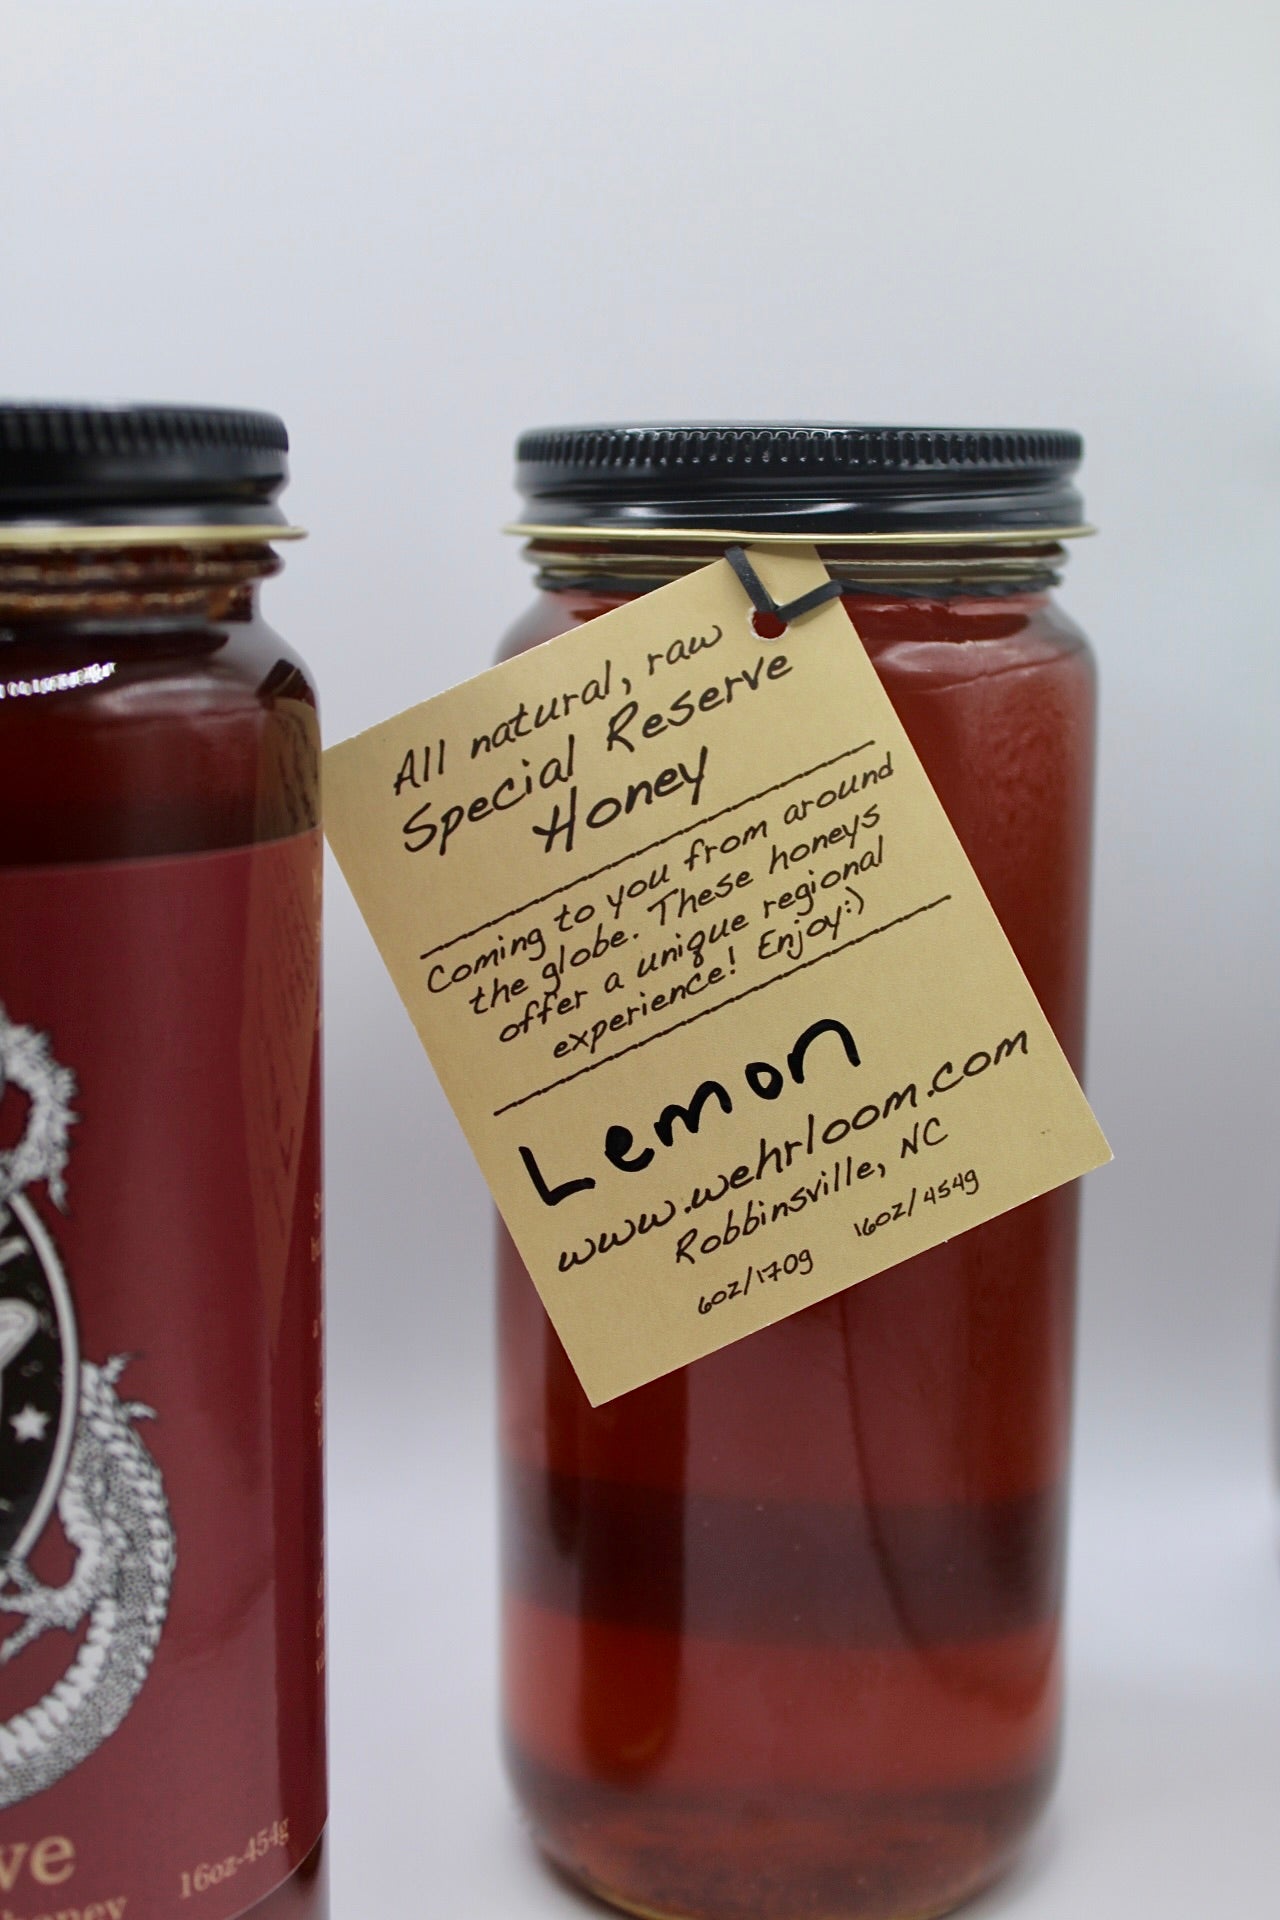 All natural, raw
Special Reserve
Honey
Coming to you from around
the globe. These honeys
offer a unique regional
experience! Enjoy:)
Lemon
www.wehrloom.com
Robbinsville, NC
6oz/170g 16oz/454g
ve
honey
16oz-454g